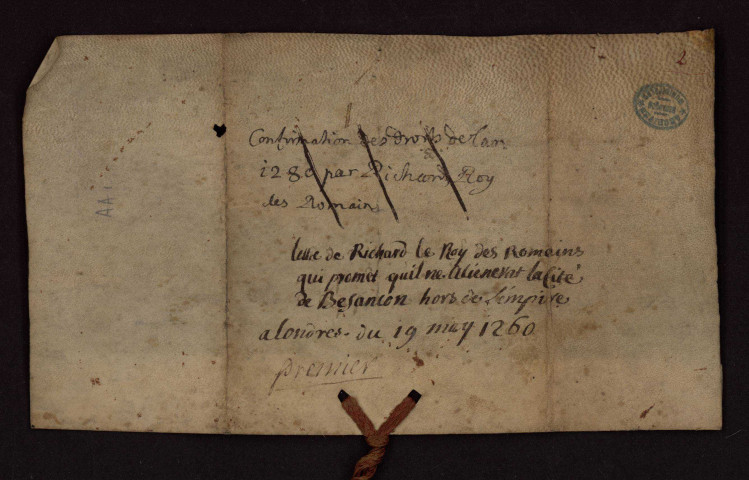 2
Confirmation des droits de l'an
1280 par Richard Roy
des Romains
lettre de Richard le Roy des Romains
qui promet quil ne alienerat la Cité
de Besancon hors de l'empire
a londres du 19 may 1260
premier
AA 1